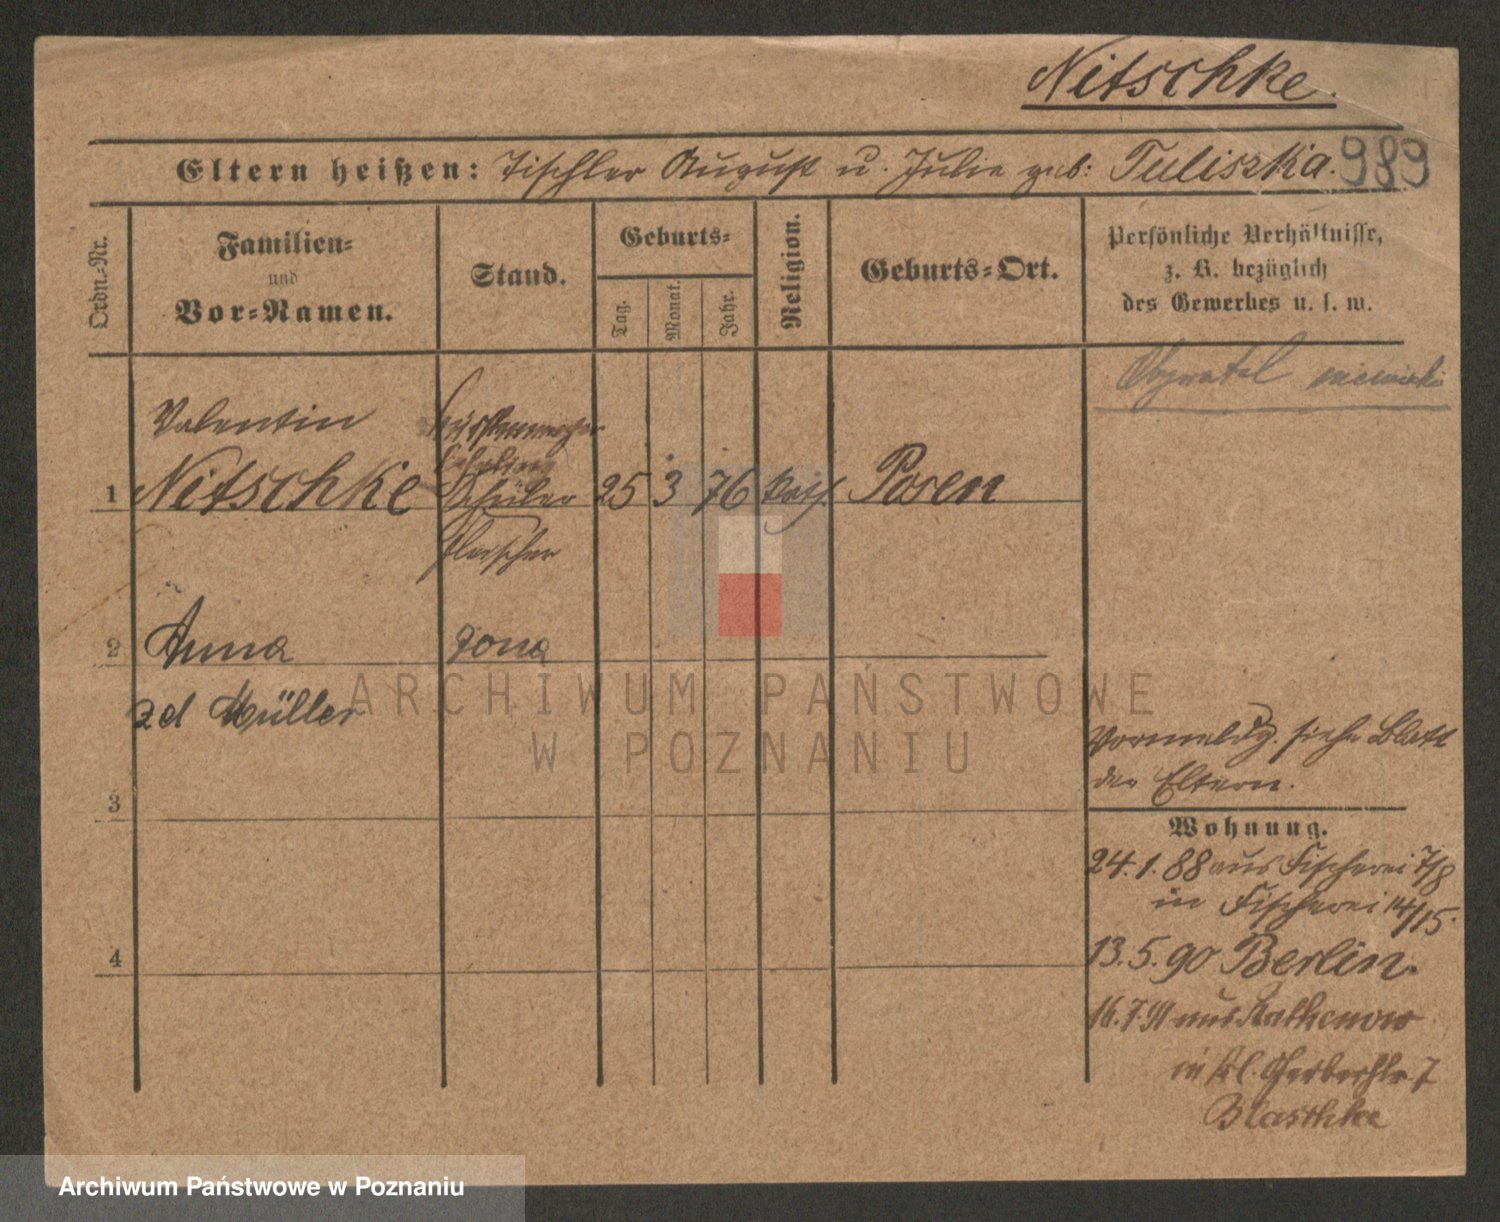 Nitschke.
Eltern heißen: Tischler August u. Julie geb: Tuliszka. 989
Ordn.=Nr.
Familien=
und
Vor=Namen.
Stand.
Geburts=
Tag.
Monat.
Jahr.
Religion.
Geburts=Ort.
Persönliche Verhältnisse,
z. B. bezüglich
des Gewerbes u. s. w.
Valentin
Bürstenmacher
Lehrling
1 Nitschke Schüler 25 3 76 kath. Posen
Fleischer
2 Anna żona
zd Müller
Vormeldg. siehe Blatt
der Eltern.
3
Wohnung.
24.1.88 aus Fischerei 7/8
in Fischerei 14/15.
4
13.5.90 Berlin.
16.7.91 aus Rathenow
in Kl. Gerberstr. 7
Blaschke
ARCHIWUM PAŃSTWOWE
W POZNANIU
Archiwum Państwowe w Poznaniu